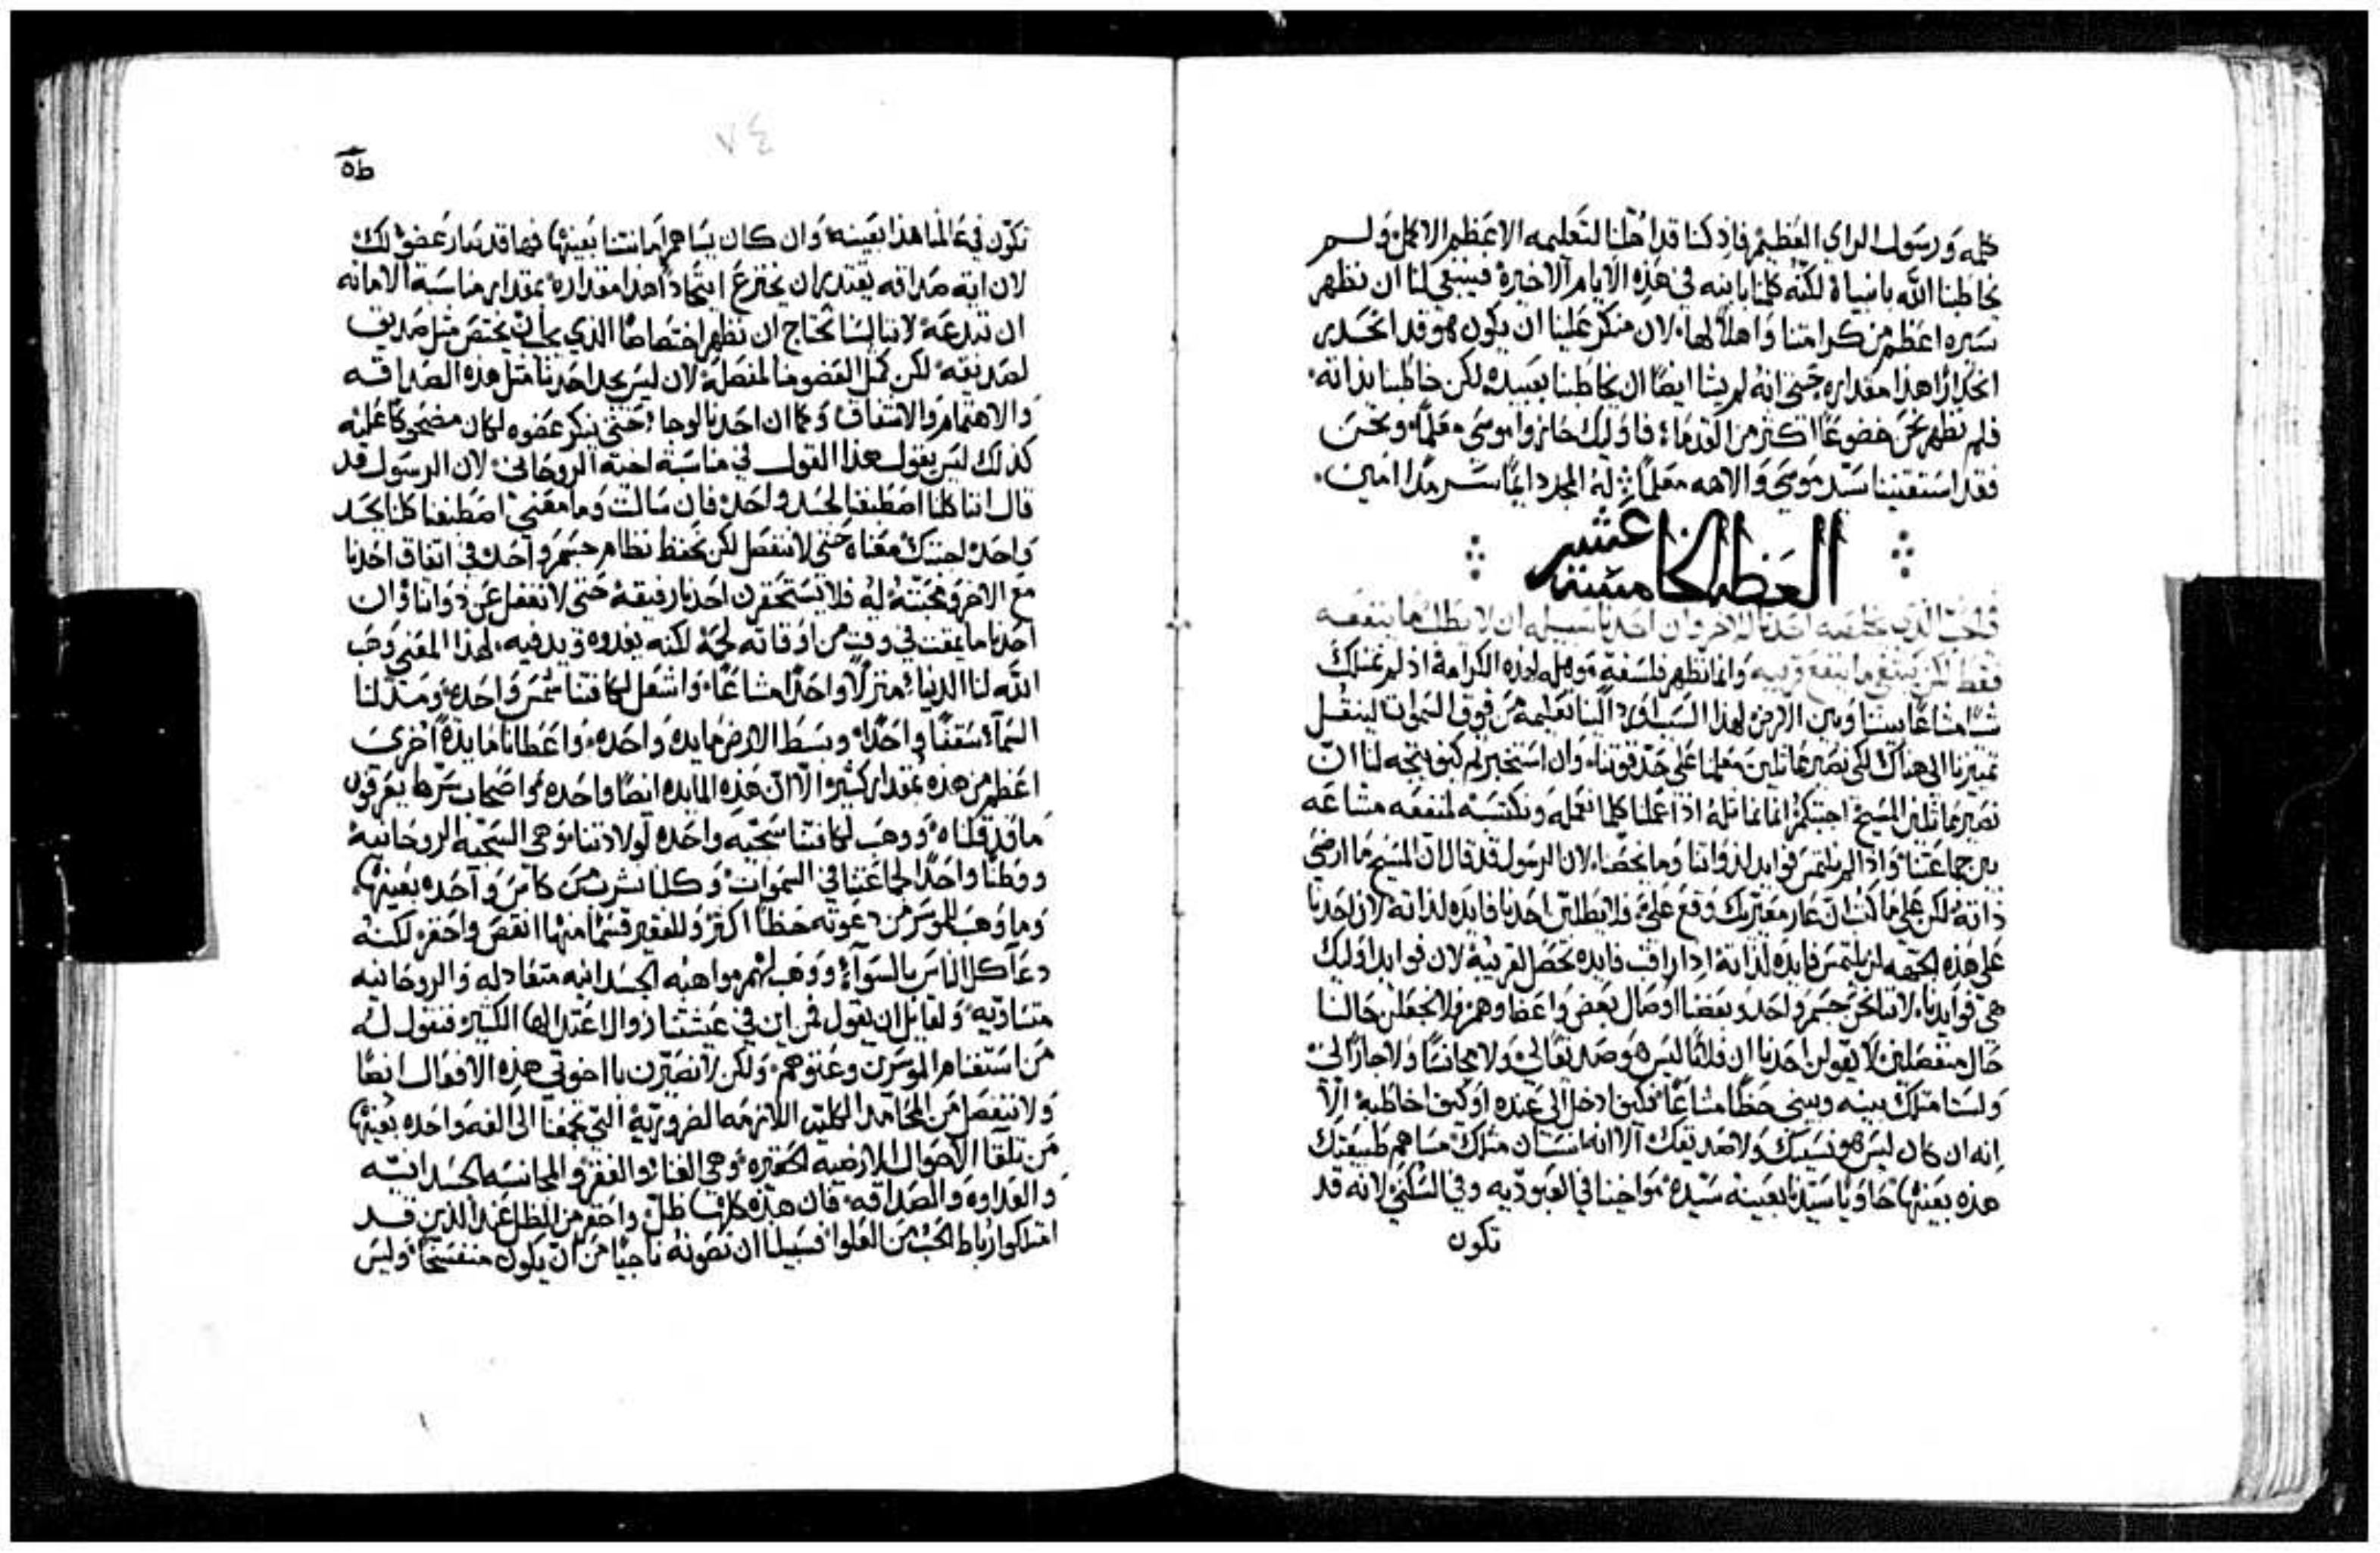 كله ورسول الراي العظيم فاذ كنا قد اهلنا لتعليمه الاعظم الاكمل ولم
يخاطبنا الله بانبياه لكنه كلمنا بابنه في هذه الايام الاخيرة فينبغي لنا ان نظهر
سيره اعظم من كرامتنا واهلاً لها لان منكر علينا ان يكون هو قد انحدر
انحداراً هذا مقداره حتى انه لم يشا ايضاً ان يخاطبنا بعبيده لكن خاطبنا بذاته
فلم نظهر نحن خضوعاً اكثر من القدما فاوليك حازوا موسى معلماً ونحن
فقد استقنينا سيد موسى والاهه معلماً له المجد دايماً سرمدا امين
العظه الخامسه عشر
في الحب الذي يخلصه احدنا للاخر وان احدنا سبيله ان لا يطلب ما ينفعه
فقط لكن يبتغي ما ينفع قريبه وانما تظهر فلسفة موهله لهذه الكرامة اذ لم نمتلك
شياً مشاعاً بيننا وبين الارض لهذا السبب الينا تعليمه من فوق السموات لينقل
تمييزنا الى هناك لكي نصير مماثلين معلمنا على حد قوتنا وان استخبر كيف يتجه لنا ان
نصير مماثلين المسيح اجبتكم انما نماثله اذا عملنا كلما نعمله ونكتسبه لمنفعه مشاعه
بين جماعتنا واذا لم نلتمس فوايد لذواتنا وما يخصنا لان الرسول قد قال ان المسيح ما ارضى
ذاته لكن على ما كتب ان عار معيريك وقع علي فلا يطلبن احدنا فايده لذاته لان احدنا
على هذه الجهه لن يلتمس فايده لذاته اذا راقب فايده تحصل لقريبه لان فوايد اوليك
هي فوايدنا لاننا نحن جسم واحد وبعضنا اوصال بعض واعضاوهم فلا نجعلن حالنا
حال منفصلين لا يقولن احدنا ان فلاناً ليس هو صديقاً لي ولا مجانساً ولا جاراً لي
ولست امتلك بينه وبيني حظاً مشاعاً فكيف ادخل الى عنده او كيف اخاطبه الا
انه ان كان ليس هو نسيبك ولا صديقك الا انه انسان مثلك مساهم طبيعتك
هذه بعينها حاوياً سيدنا بعينه سيده مواخينا في العبوديه وفي السكنى لانه قد
تكون
٧٤
تكون في عالمنا هذا بعينه وان كان يساهم امانتنا بعينها فهاقد صار عضو لك
لان اية صداقه يقتدر ان يخترع اتحاداً هذا مقداره بمقدار مناسبة الامانه
ان تبدعه لاننا لسنا نحتاج ان نظهر اختصاصاً الذي يجب ان يختص مثل صديق
لصديقه لكن كمثل العضو منا لمتصله لان ليس يجد احدنا مثل هذه الصداقه
والاهتمام والاتفاق وكما ان احدنا حتى ينكر عضوه لكان مضحوكاً عليه
كذلك ليس يقول هذا القول في مناسبة اخيه الروحاني لان الرسول قد
قال اننا كلنا اصطبغنا لجسد واحد فان سالت وما معنى اصطبغنا كلنا لجسد
واحد اجبتك معناه حتى لا ننفصل لكن نحفظ نظام جسم واحد في اتفاق احدنا
مع الاخر ومحبته له فلا يستحقرن احدنا رفيقه حتى لا نغفل عن ذواتنا وان
احدنا ما يمقت في وقت من اوقاته لحمه لكنه يغدوه ويدفيه لهذا المعنى وهب
الله لنا الدنيا منزلاً واحداً مشاعاً واشعل لكافتنا شمس واحده ومد لنا
السماء سقفاً واحداً وبسط الارض مايده واحده واعطانا مايدة اخرى
اعظم من هذه بمقدار كثير الا ان هذه المايده ايضاً واحده واصحاب سرها يعرفون
ما قد قلناه ووهب لكافتنا سجيه واحده لولادتنا وهي السجيه الروحانيه
ووطناً واحداً لجماعتنا في السموات وكلنا نشرب من كاس واحده بعينها
وما وهب للموسر من دعوته حظاً اكثر وللفقير قسماً منها انقص واحقر لكنه
دعا كل الناس بالسوآء ووهب لهم مواهبه الجسدانيه متعادله والروحانيه
متساويه ولقايل ان يقول فمن اين في عيشتنا زوال اعتدالها الكثير فنقول له
من استغنام الموسرين وعتوهم ولكن لا نصيرن يا اخوتي هذه الافعال ايضاً
ولا ننفصل من المحامد الكليه اللازمه الضروريه التي تجمعنا الى الفه واحده بعينها
من تلقا الاحوال الارضيه الحقيره وهي الغنا والفقر والمجانسه الجسدانيه
والعداوه والصداقه فان هذه كلها ظل واحقر من الظل عند الذين قد
امتلكوا رباط الحب من العلوا فسبيلنا ان نصونه ناجياً من ان يكون منفسخاً وليس